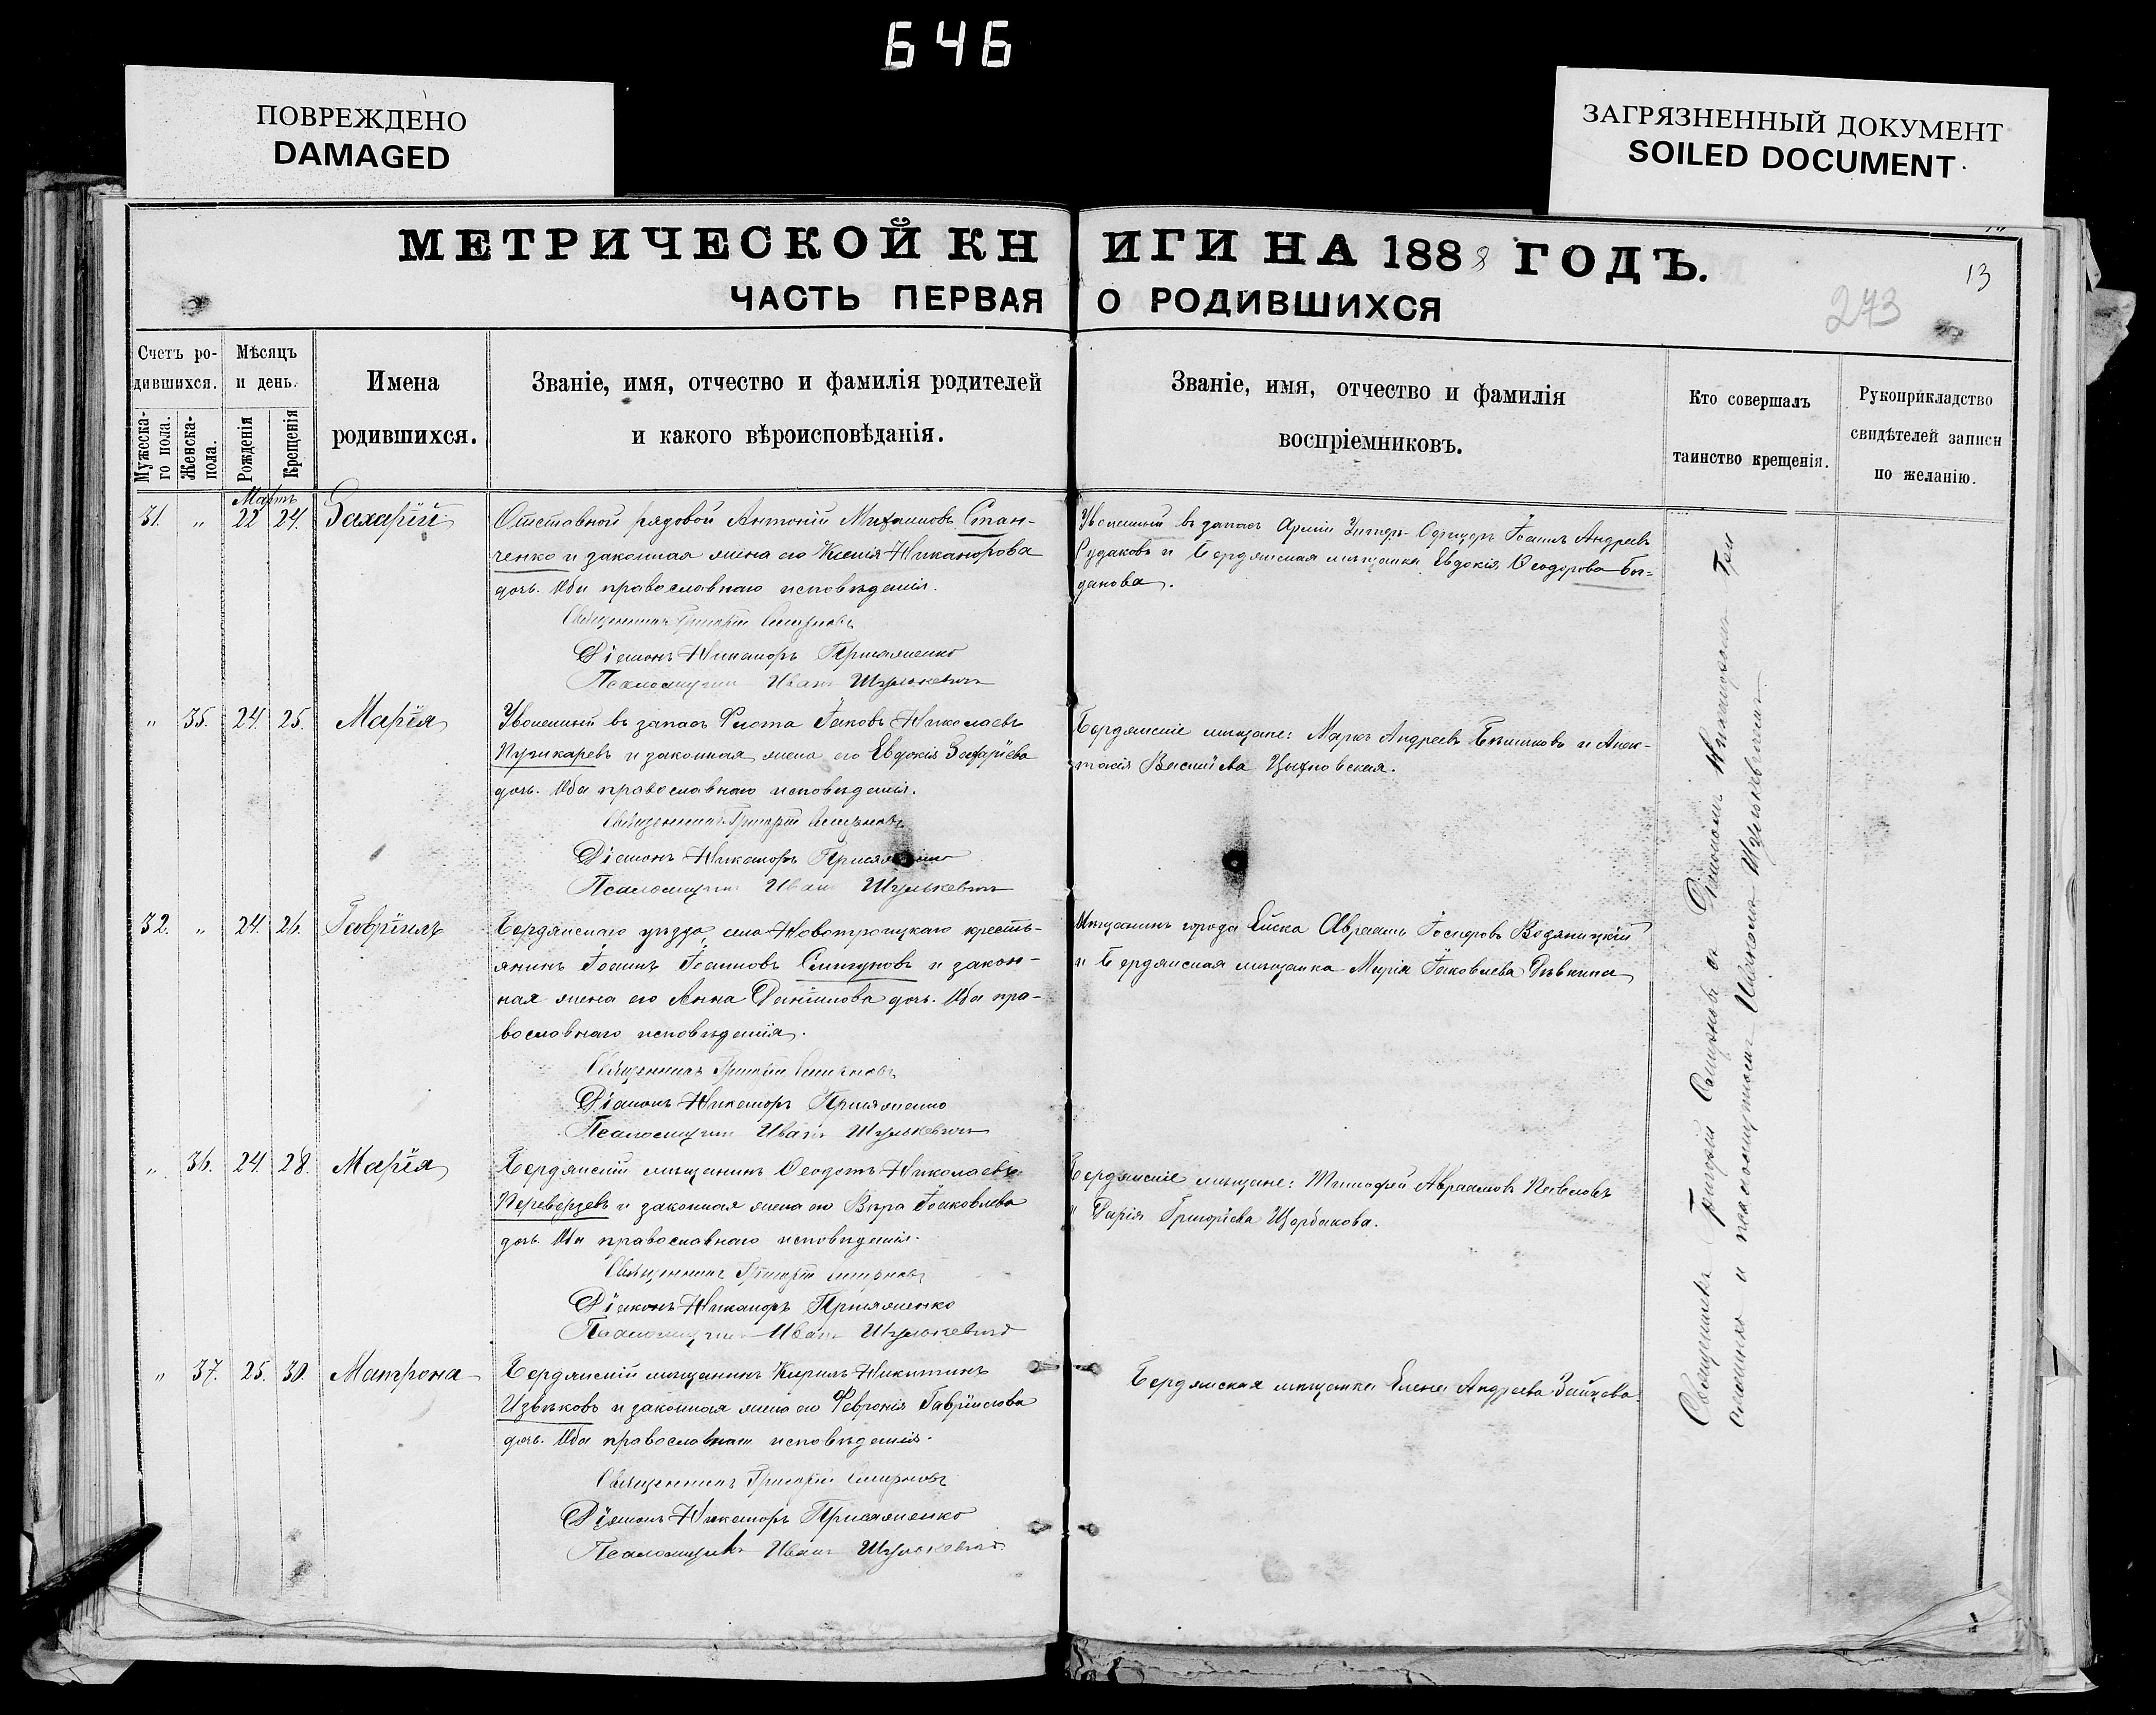 646
ПОВРЕЖДЕНО
DAMAGED
ЗАГРЯЗНЕННЫЙ ДОКУМЕНТ
SOILED DOCUMENT
МЕТРИЧЕСКОЙ КНИГИ НА 1888 ГОДЪ.
13
ЧАСТЬ ПЕРВАЯ О РОДИВШИХСЯ
273
Счетъ родившихся.
Мужескаго пола.
Женска- пола.
Мѣсяцъ и день.
Рожденія
Крещенія
Имена родившихся.
Званіе, имя, отчество и фамилія родителей
и какого вѣроисповѣданія.
Званіе, имя, отчество и фамилія
воспріемниковъ.
Кто совершалъ
таинство крещенія.
Рукоприкладство
свидѣтелей записи
по желанію.
Мартъ
31. " 22 24. Захарій
Отставной рядовой Антоній Михаиловъ Стан-
ченко и законная жена его Ксенія Никанорова
дочь. Оба православнаго исповѣданія.
Священникъ Григорій Смирновъ
Діаконъ Никаноръ Присяженко
Псаломщикъ Иванъ Шулькевичъ
Уволенный въ запасъ Арміи Унтеръ-Офицеръ Іоаннъ Андреевъ
Судаковъ и Бердянская мѣщанка Евдокія Ѳеодорова Бы-
данова.
" 35. 24. 25. Марія
Уволенный въ запасъ Флота Іаковъ Николаевъ
Пушкаревъ и законная жена его Евдокія Захаріева
дочь. Оба православнаго исповѣданія.
Священникъ Григорій Смирновъ
Діаконъ Никаноръ Присяженко
Псаломщикъ Иванъ Шулькевичъ
Бердянскіе мѣщане: Маркъ Андреевъ и Анас-
тасія Василіева Цыхновская.
32. " 24. 26. Гавріилъ
Бердянскаго уѣзда, села Новотроицкаго кресть-
янинъ Іоаннъ Іоанновъ и закон-
ная жена его Анна Даніилова дочь. Оба пра-
вославнаго исповѣданія.
Священникъ Григорій Смирновъ
Діаконъ Никаноръ Присяженко
Псаломщикъ Иванъ Шулькевичъ
Мѣщанинъ города Ейска Авраамъ Іосифовъ Водяницкій
и Бердянская мѣщанка Марія Іаковлева Дѣвкина
" 36. 24. 28. Марія
Бердянскій мѣщанинъ Ѳеодотъ Николаевъ
Переверзевъ и законная жена его Вѣра Іаковлева
дочь. Оба православнаго исповѣданія.
Священникъ Григорій Смирновъ
Діаконъ Никаноръ Присяженко
Псаломщикъ Иванъ Шулькевичъ
Бердянскіе мѣщане: Тимофей Авраамовъ Павловъ
и Дарія Григоріева Щербакова.
" 37. 25. 30. Матрона
Бердянскій мѣщанинъ Кирилъ Никитинъ
Извѣковъ и законная жена его Февронія Гавріилова
дочь. Оба православнаго исповѣданія.
Священникъ Григорій Смирновъ
Діаконъ Никаноръ Присяженко
Псаломщикъ Иванъ Шулькевичъ
Бердянская мѣщанка Елена Андреева Зайцева.
Священникъ Григорій Смирновъ съ Діакономъ Никаноромъ При-
сяженко и псаломщикомъ Иваномъ Шулькевичемъ